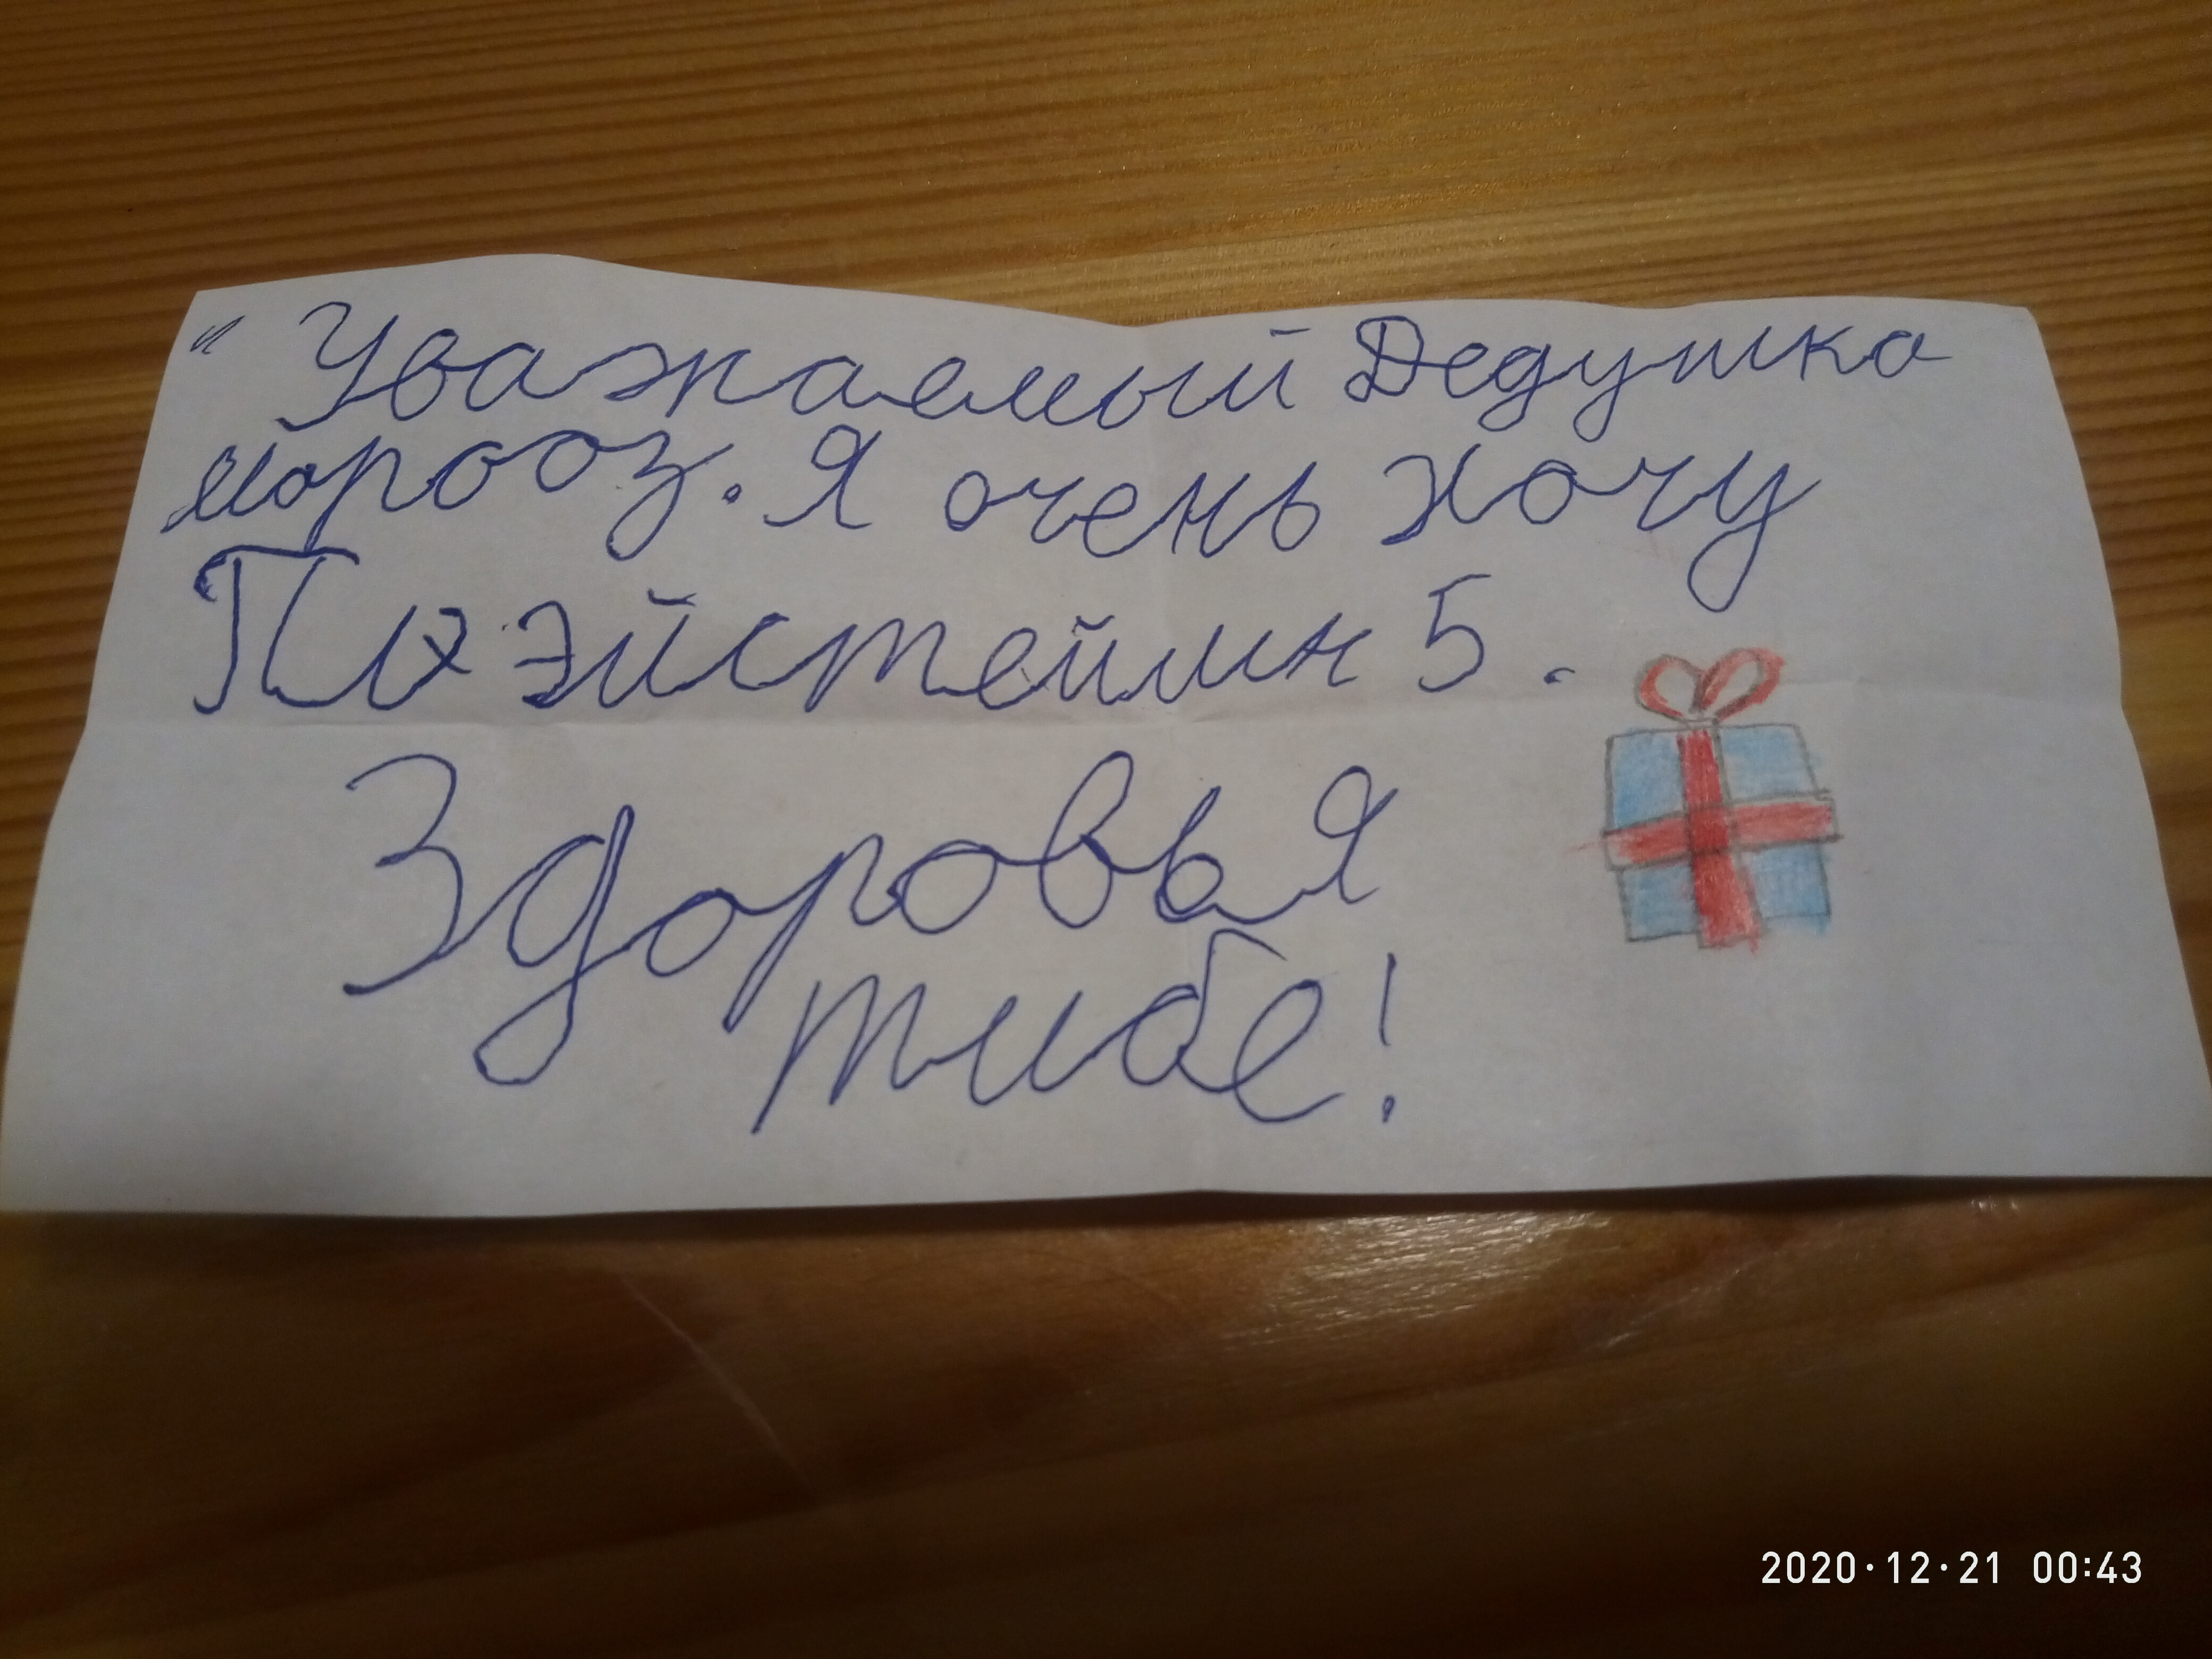 " Уважаемый Дедушка
мороз. Я очень хочу
Плэйстейшн 5.
Здоровья
тибе!
2020·12·21 00:43